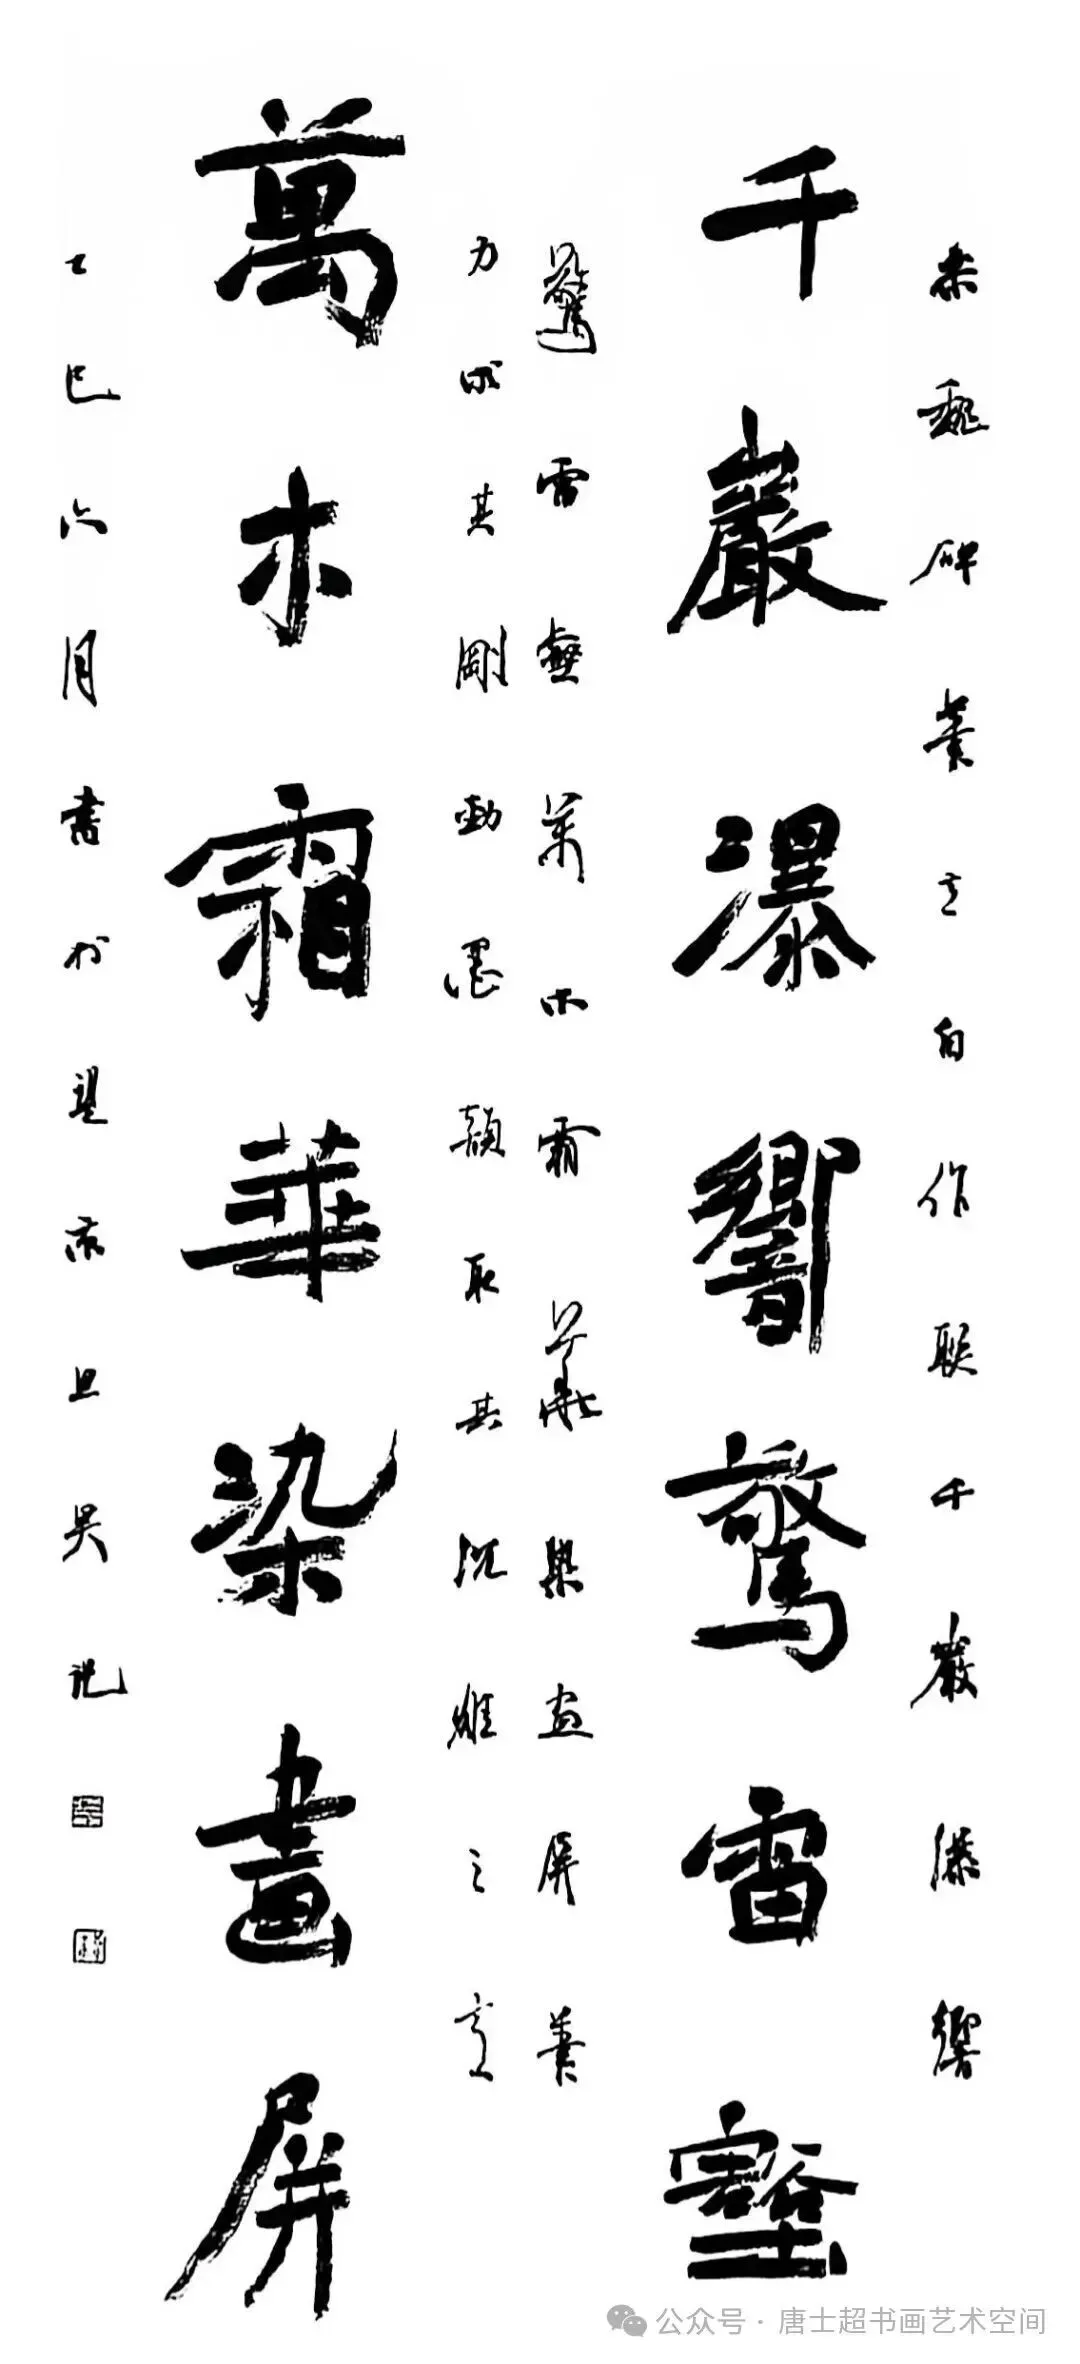 魏碑筆自作联千巖瀑響
千巖瀑響驚雷壑
驚雷壑萬木霜華染畫屏筆
力求其剛勁墨韻取其沉雄之意
萬木霜華染畫屏
乙巳六月書於
公众号·唐士超书画艺术空间